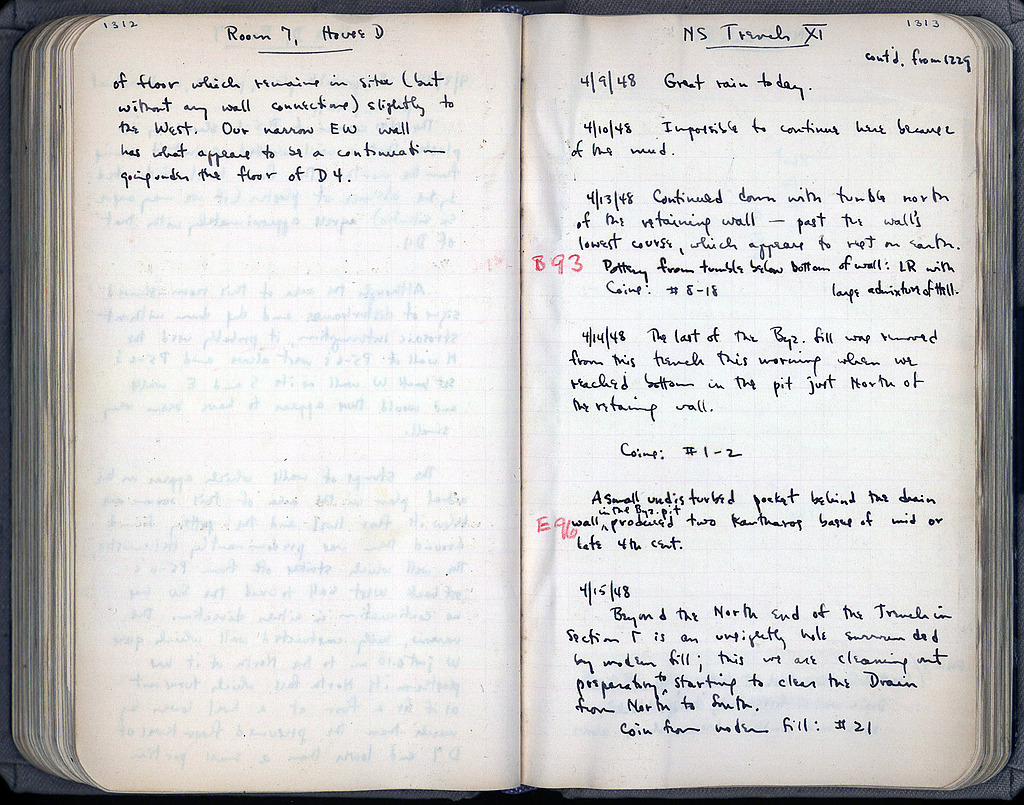 1312
Room 7, House D
of floor which remains in situ (but
without any wall connections) slightly to
the West. Our narrow EW wall
has what appears to be a continuation
going under the floor of D4.
1313
NS Trench XI
cont'd. from 1229
4/9/48 Great rain today.
4/10/48 Impossible to continue here because
of the mud.
4/13/48 Continued down with tumble north
of the retaining wall — past the wall's
lowest course, which appears to rest on earth.
B93 Pottery from tumble below bottom of wall: LR with
large admixture of Hell.
Coins: #8-18
4/14/48 The last of the Byz. fill was removed
from this trench this morning when we
reached bottom in the pit just North of
the retaining wall.
Coins: #1-2
A small undisturbed pocket behind the drain
in the Byz. pit
E96 wall, produced two kantharos bases of mid or
late 4th cent.
4/15/48
Beyond the North end of the Trench in
Section Γ is an unsightly hole surrounded
by modern fill; this we are cleaning out
preparatory to starting to clear the Drain
from North to South.
Coin from modern fill: #21